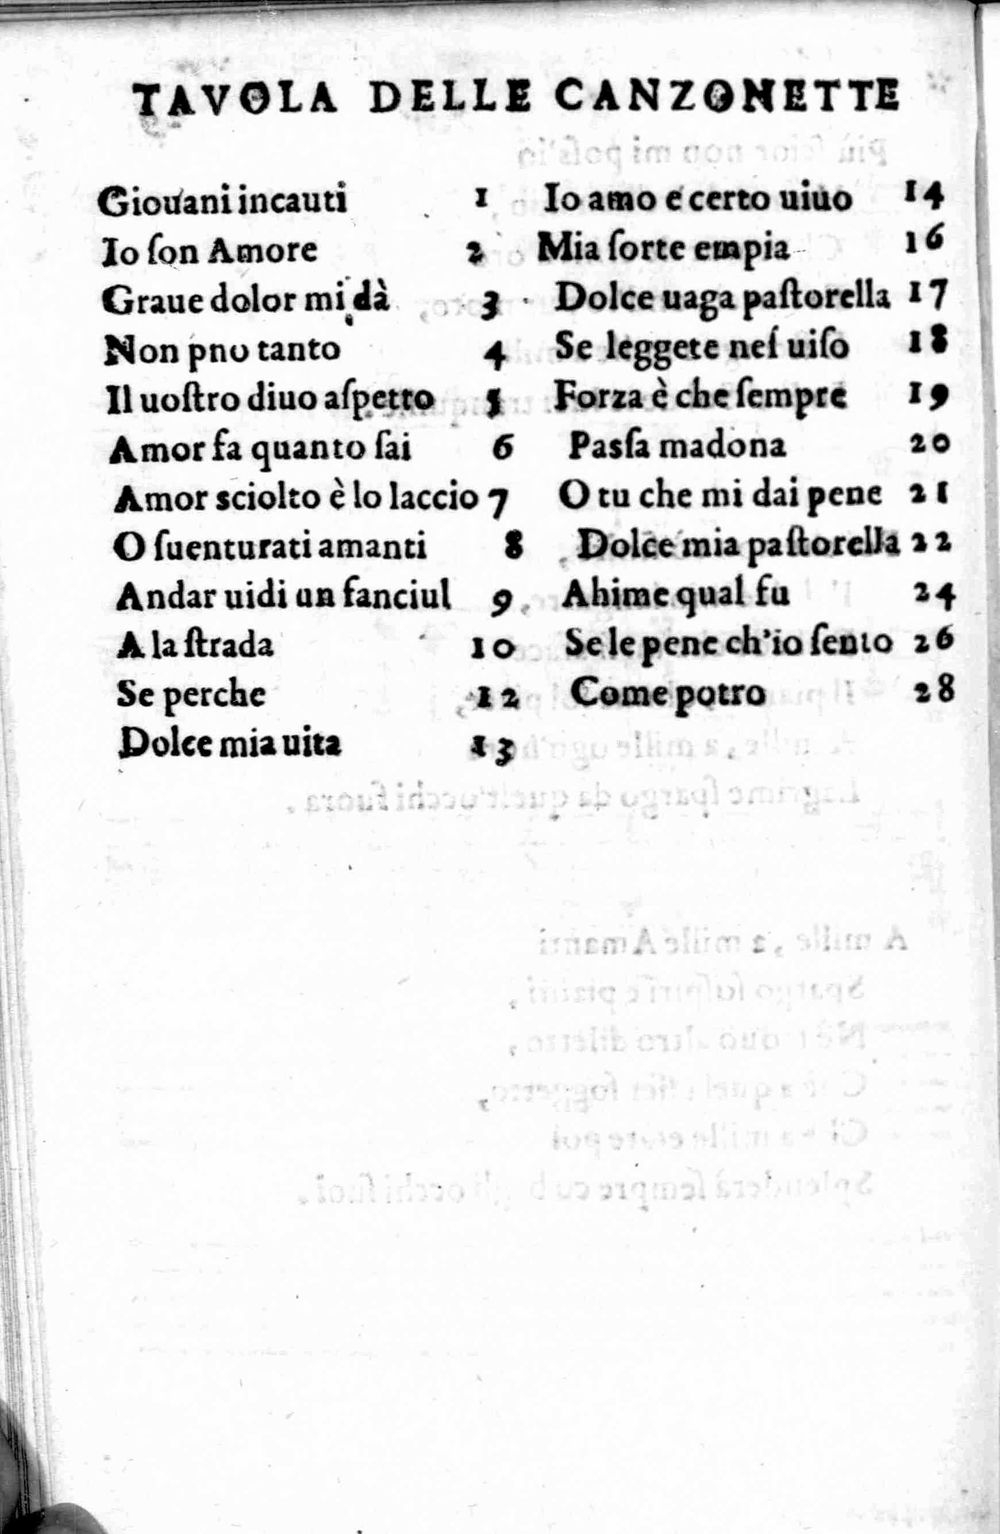 TAVOLA DELLE CANZONETTE
Giouani incauti 1
Io ſon Amore 2
Graue dolor mi dà 3
Non pno tanto 4
Il uoſtro diuo aſpetto 5
Amor fa quanto ſai 6
Amor sciolto è lo laccio 7
O ſuenturati amanti 8
Andar uidi un fanciul 9
A la ſtrada 10
Se perche 12
Dolce mia uita 13
Io amo e certo uiuo 14
Mia ſorte empia 16
Dolce uaga paſtorella 17
Se leggete nel uiſo 18
Forza è che ſempre 19
Pasſa madona 20
O tu che mi dai pene 21
Dolce mia paſtorella 22
Ahime qual fu 24
Se le pene ch'io ſento 26
Come potro 28